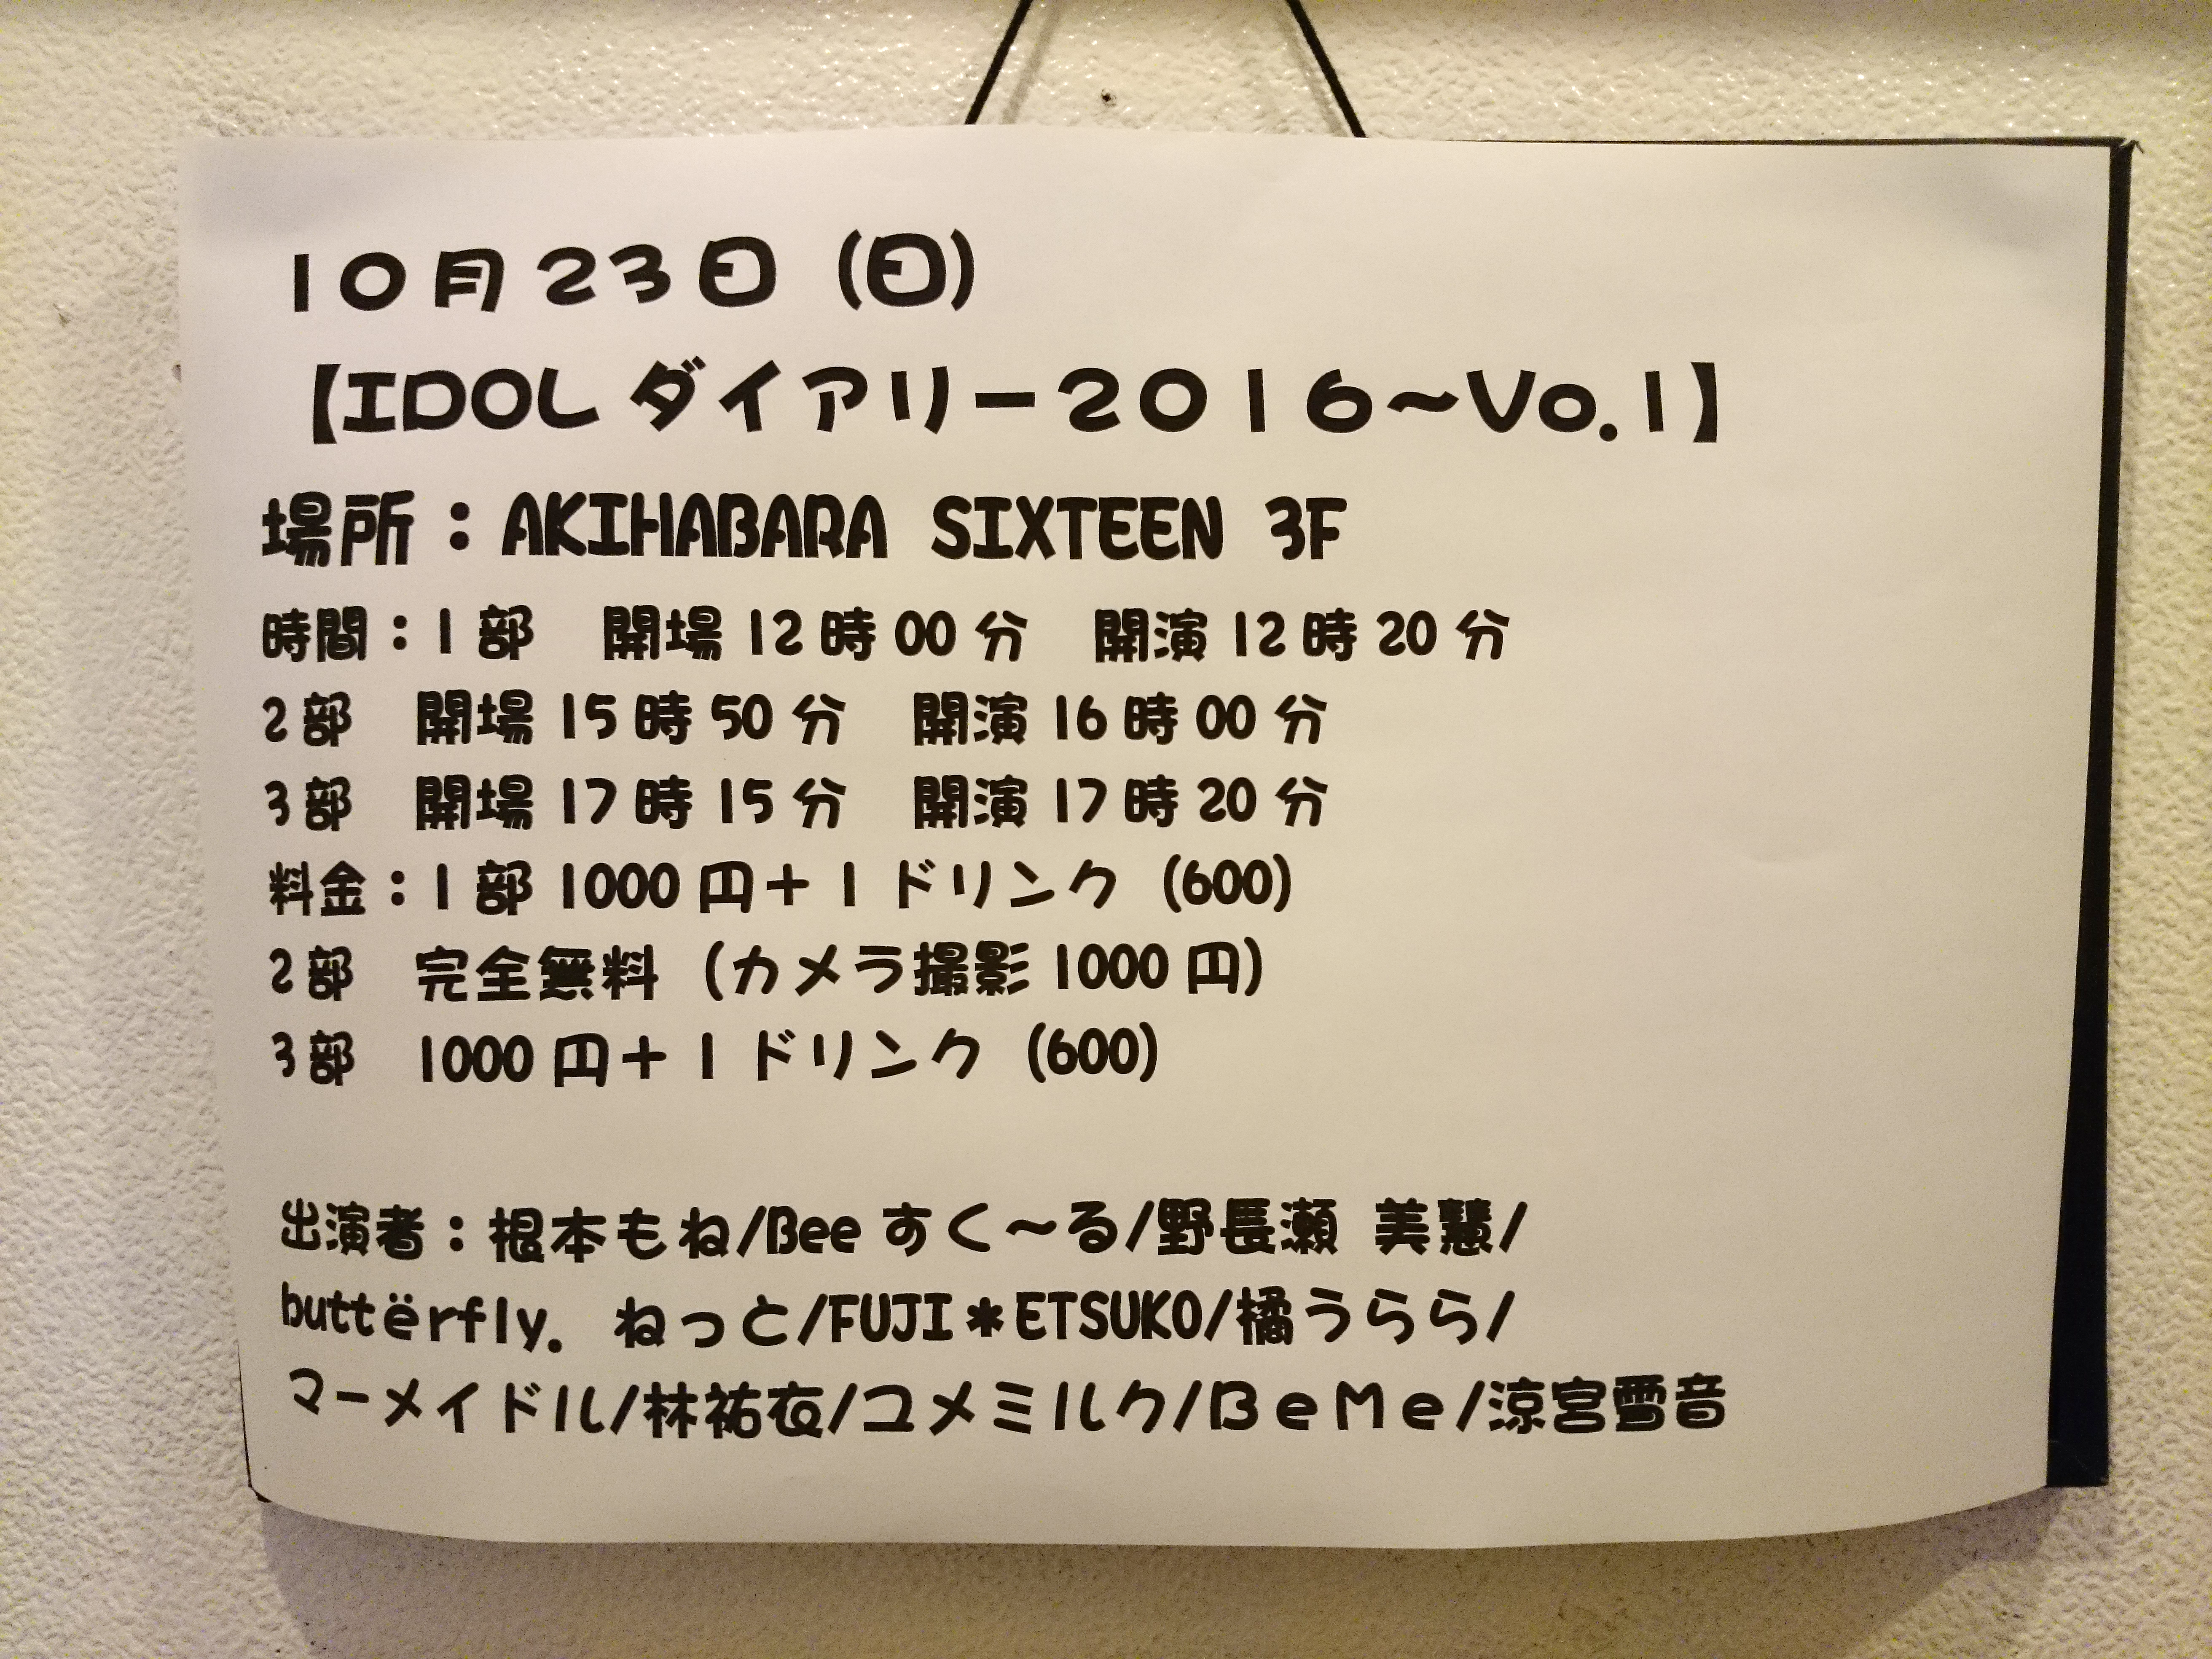 10月23日（日）
【IDOLダイアリー2016～Vo.1】
場所：AKIHABARA SIXTEEN 3F
時間：1部　開場12時00分　開演12時20分
2部　開場15時50分　開演16時00分
3部　開場17時15分　開演17時20分
料金：1部1000円＋1ドリンク（600）
2部　完全無料（カメラ撮影1000円）
3部　1000円＋1ドリンク（600）
出演者：根本もね/Beeすく～る/野長瀬 美慧/
buttërfly. ねっと/FUJI＊ETSUKO/橘うらら/
マーメイドル/林祐衣/ユメミルク/BeMe/涼宮雪音